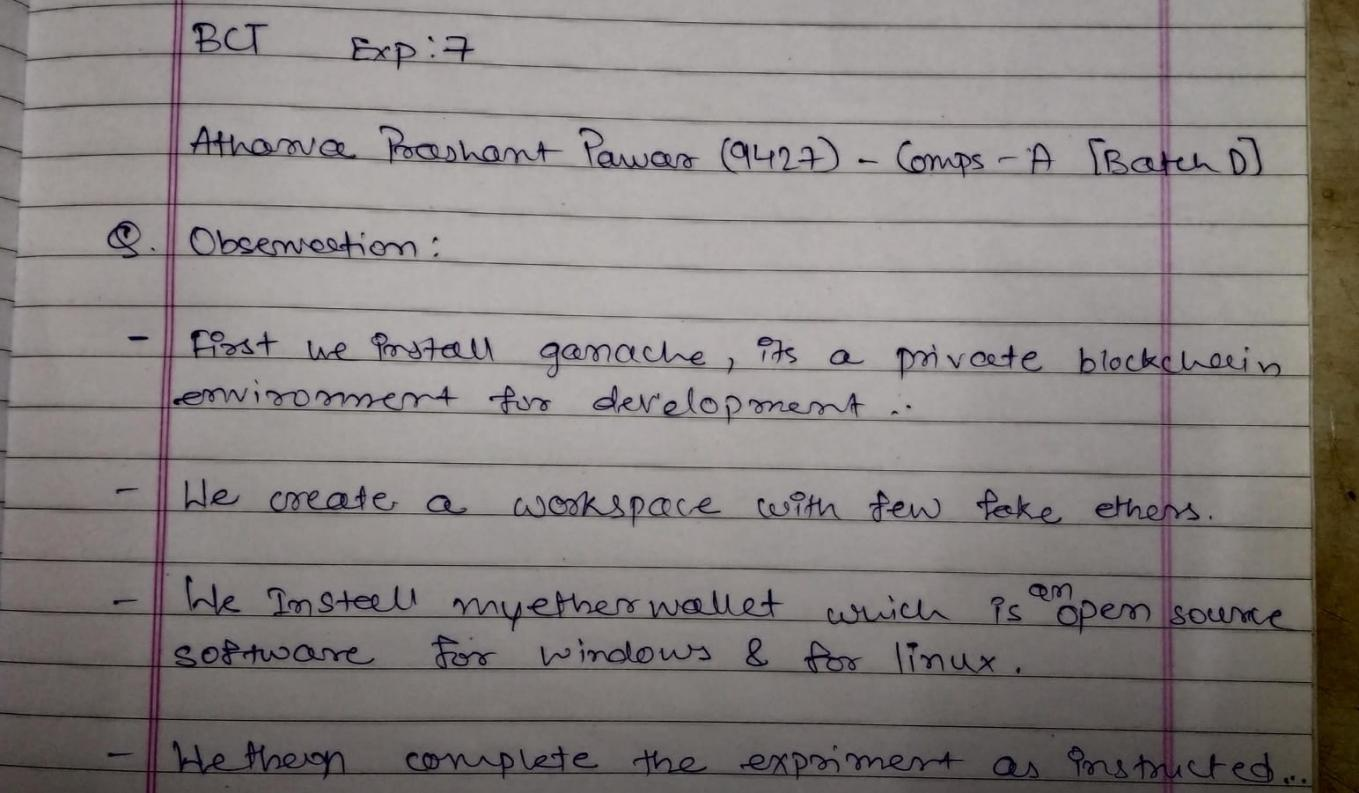 BCT Exp:7
Atharva Prashant Pawar (9427) - Comps - A [Batch D]
Q. Observation:
- First we install ganache, its a private blockchain
environment for development ..
- We create a workspace with few fake ethers.
- We Install myetherwallet which is an open source
software for windows & for linux.
- We then complete the expriment as instructed...